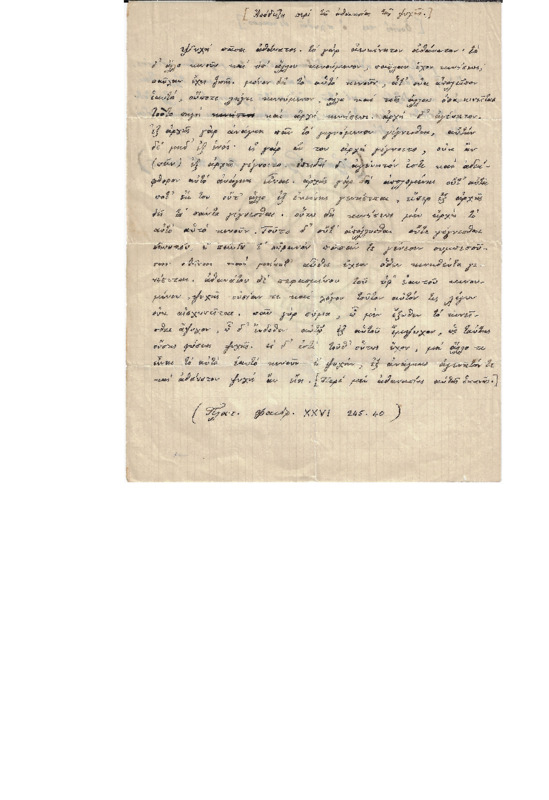 [Ἀπόδειξις περὶ τῆς ἀθανασίας τῆς ψυχῆς.]
Ψυχὴ πᾶσα ἀθάνατος. τὸ γὰρ ἀεικίνητον ἀθάνατον· τὸ
δ' ἄλλο κινοῦν καὶ ὑπ' ἄλλου κινούμενον, παῦλαν ἔχον κινήσεως,
παῦλαν ἔχει ζωῆς. μόνον δὴ τὸ αὑτὸ κινοῦν, ἅτ' οὐκ ἀπολεῖπον
ἑαυτό, οὔποτε λήγει κινούμενον, ἀλλὰ καὶ τοῖς ἄλλοις ὅσα κινεῖται
τοῦτο πηγὴ καὶ ἀρχὴ κινήσεως. ἀρχὴ δ' ἀγένητον.
ἐξ ἀρχῆς γὰρ ἀνάγκη πᾶν τὸ γιγνόμενον γίγνεσθαι, αὐτὴν
δὲ μηδ' ἐξ ἑνός· εἰ γὰρ ἔκ του ἀρχὴ γίγνοιτο, οὐκ ἂν
ἐξ ἀρχῆς γίγνοιτο. ἐπειδὴ δ' ἀγένητόν ἐστι καὶ ἀδιά-
φθορον αὐτὸ ἀνάγκη εἶναι. ἀρχῆς γὰρ δὴ ἀπολομένης οὔτ' αὐτή
ποτ' ἔκ του οὔτ' ἄλλο ἐξ ἐκείνης γενήσεται, εἴπερ ἐξ ἀρχῆς
δεῖ τὰ πάντα γίγνεσθαι. οὕτω δὴ κινήσεως μὲν ἀρχὴ τὸ
αὐτὸ αὑτὸ κινοῦν. Τοῦτο δ' οὔτ' ἀπόλλυσθαι οὔτε γίγνεσθαι
δυνατόν, ἢ πάντα τ' οὐρανὸν πᾶσάν τε γένεσιν συμπεσοῦ-
σαν στῆναι καὶ μήποτ' αὖθις ἔχειν ὅθεν κινηθέντα γε-
νήσεται. ἀθανάτου δὲ πεφασμένου τοῦ ὑφ' ἑαυτοῦ κινου-
μένου ψυχῆς οὐσίαν τε καὶ λόγον τοῦτον αὐτόν τις λέγων
οὐκ αἰσχυνεῖται. πᾶν γὰρ σῶμα, ᾧ μὲν ἔξωθεν τὸ κινεῖ-
σθαι ἄψυχον, ᾧ δ' ἔνδοθεν αὐτῷ ἐξ αὑτοῦ ἔμψυχον, ὡς ταύτης
οὔσης φύσεως ψυχῆς. εἰ δ' ἐστὶ τοῦθ' οὕτως ἔχον, μὴ ἄλλο τι
εἶναι τὸ αὐτὸ ἑαυτὸ κινοῦν ἢ ψυχήν, ἐξ ἀνάγκης ἀγένητόν τε
καὶ ἀθάνατον ψυχὴ ἂν εἴη. [Περὶ μὲν ἀθανασίας αὐτῆς ἱκανῶς.]
(Πλατ. Φαίδρ. XXVI 245.40)